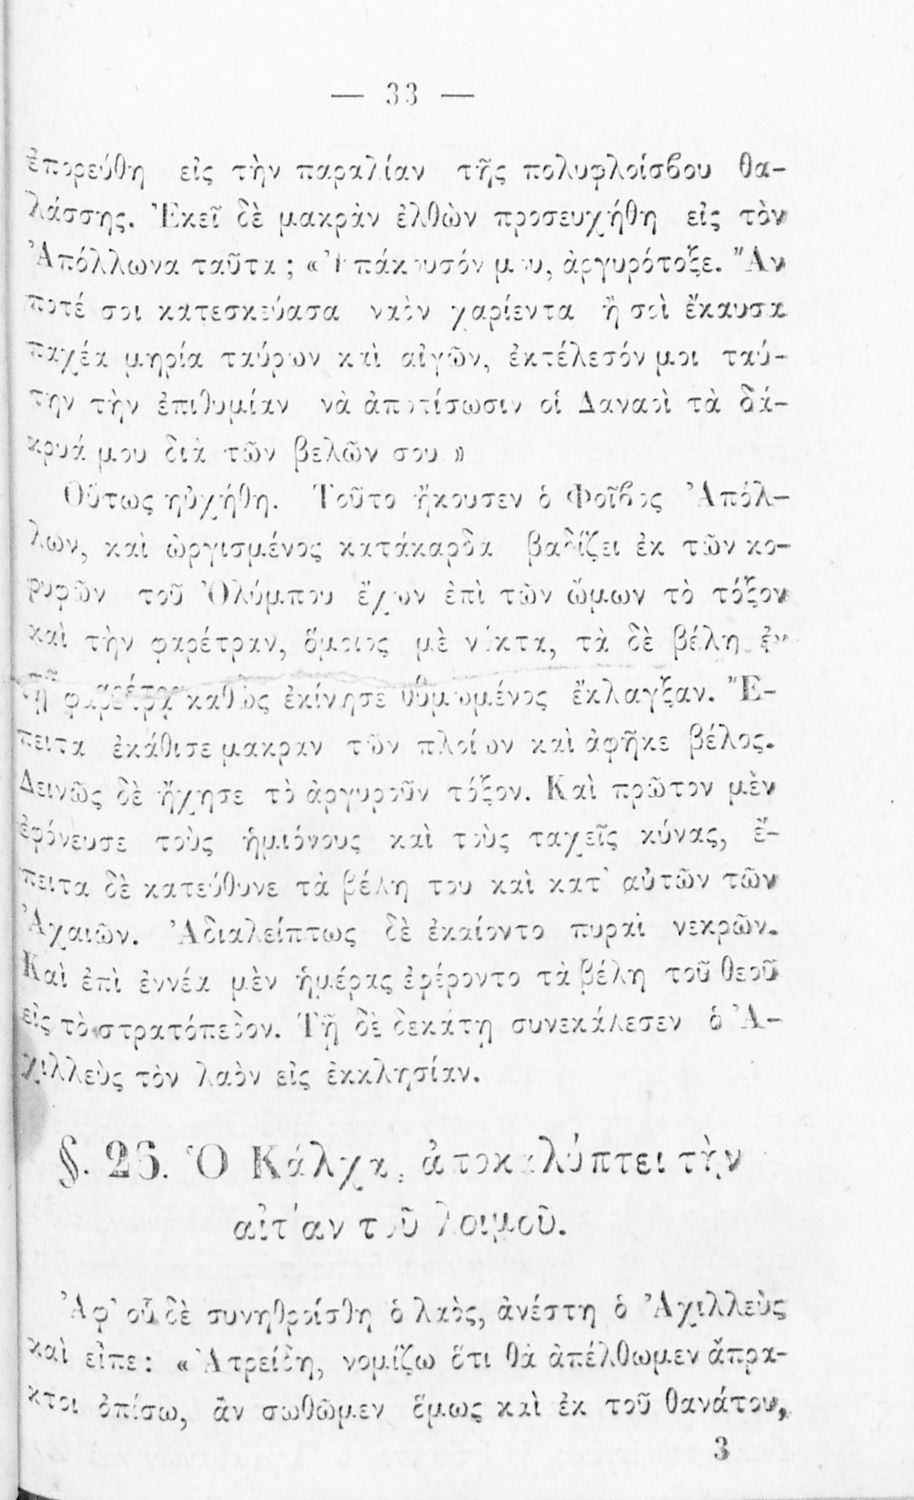 — 33 —
ἐπορεύθη εἰς τὴν παραλίαν τῆς πολυφλοίσβου θα-
λάσσης. Ἐκεῖ δὲ μακρὰν ἐλθὼν προσευχήθη εἰς τὸν
Ἀπόλλωνα ταῦτα ; «Ἐπάκουσόν μου, ἀργυρότοξε. Ἄν
ποτέ σοι κατεσκεύασα ναὸν χαρίεντα ἢ σοὶ ἔκαυσα
παχέα μηρία ταύρων καὶ αἰγῶν, ἐκτέλεσόν μοι ταύ-
την τὴν ἐπιθυμίαν νὰ ἀποτίσωσιν οἱ Δαναοὶ τὰ δά-
κρυά μου διὰ τῶν βελῶν σου »
Οὕτως ηὐχήθη. Τοῦτο ἤκουσεν ὁ Φοῖβος Ἀπόλ-
λων, καὶ ὠργισμένος κατάκαρδα βαδίζει ἐκ τῶν κο-
ρυφῶν τοῦ Ὀλύμπου ἔχων ἐπὶ τῶν ὤμων τὸ τόξον
καὶ τὴν φαρέτραν, ὅμοιος μὲ νύκτα, τὰ δὲ βέλη ἐν
τῇ φαρέτρᾳ καθὼς ἐκίνησε θυμωμένος ἔκλαγξαν. Ἔ-
πειτα ἐκάθισε μακραν τῶν πλοίων καὶ ἀφῆκε βέλος.
Δεινῶς δὲ ἤχησε τὸ ἀργυροῦν τόξον. Καὶ πρῶτον μὲν
ἐφόνευσε τοὺς ἡμιόνους καὶ τοὺς ταχεῖς κύνας, ἔ-
πειτα δὲ κατεύθυνε τὰ βέλη του καὶ κατ' αὐτῶν τῶν
Ἀχαιῶν. Ἀδιαλείπτως δὲ ἐκαίοντο πυραὶ νεκρῶν.
Καὶ ἐπὶ ἐννέα μὲν ἡμέρας ἐφέροντο τὰ βέλη τοῦ θεοῦ
εἰς τὸ στρατόπεδον. Τῇ δὲ δεκάτῃ συνεκάλεσεν ὁ Ἀ-
χιλλεὺς τὸν λαὸν εἰς ἐκκλησίαν.
§. 25. Ὁ Κάλχας ἀποκαλύπτει τὴν
αἰτίαν τοῦ λοιμοῦ.
Ἀφ' οὗ δὲ συνηθροίσθη ὁ λαὸς, ἀνέστη ὁ Ἀχιλλεὺς
καὶ εἶπε : « Ἀτρείδη, νομίζω ὅτι θὰ ἀπέλθωμεν ἄπρα-
κτοι ὀπίσω, ἂν σωθῶμεν ὅμως καὶ ἐκ τοῦ θανάτου,
3